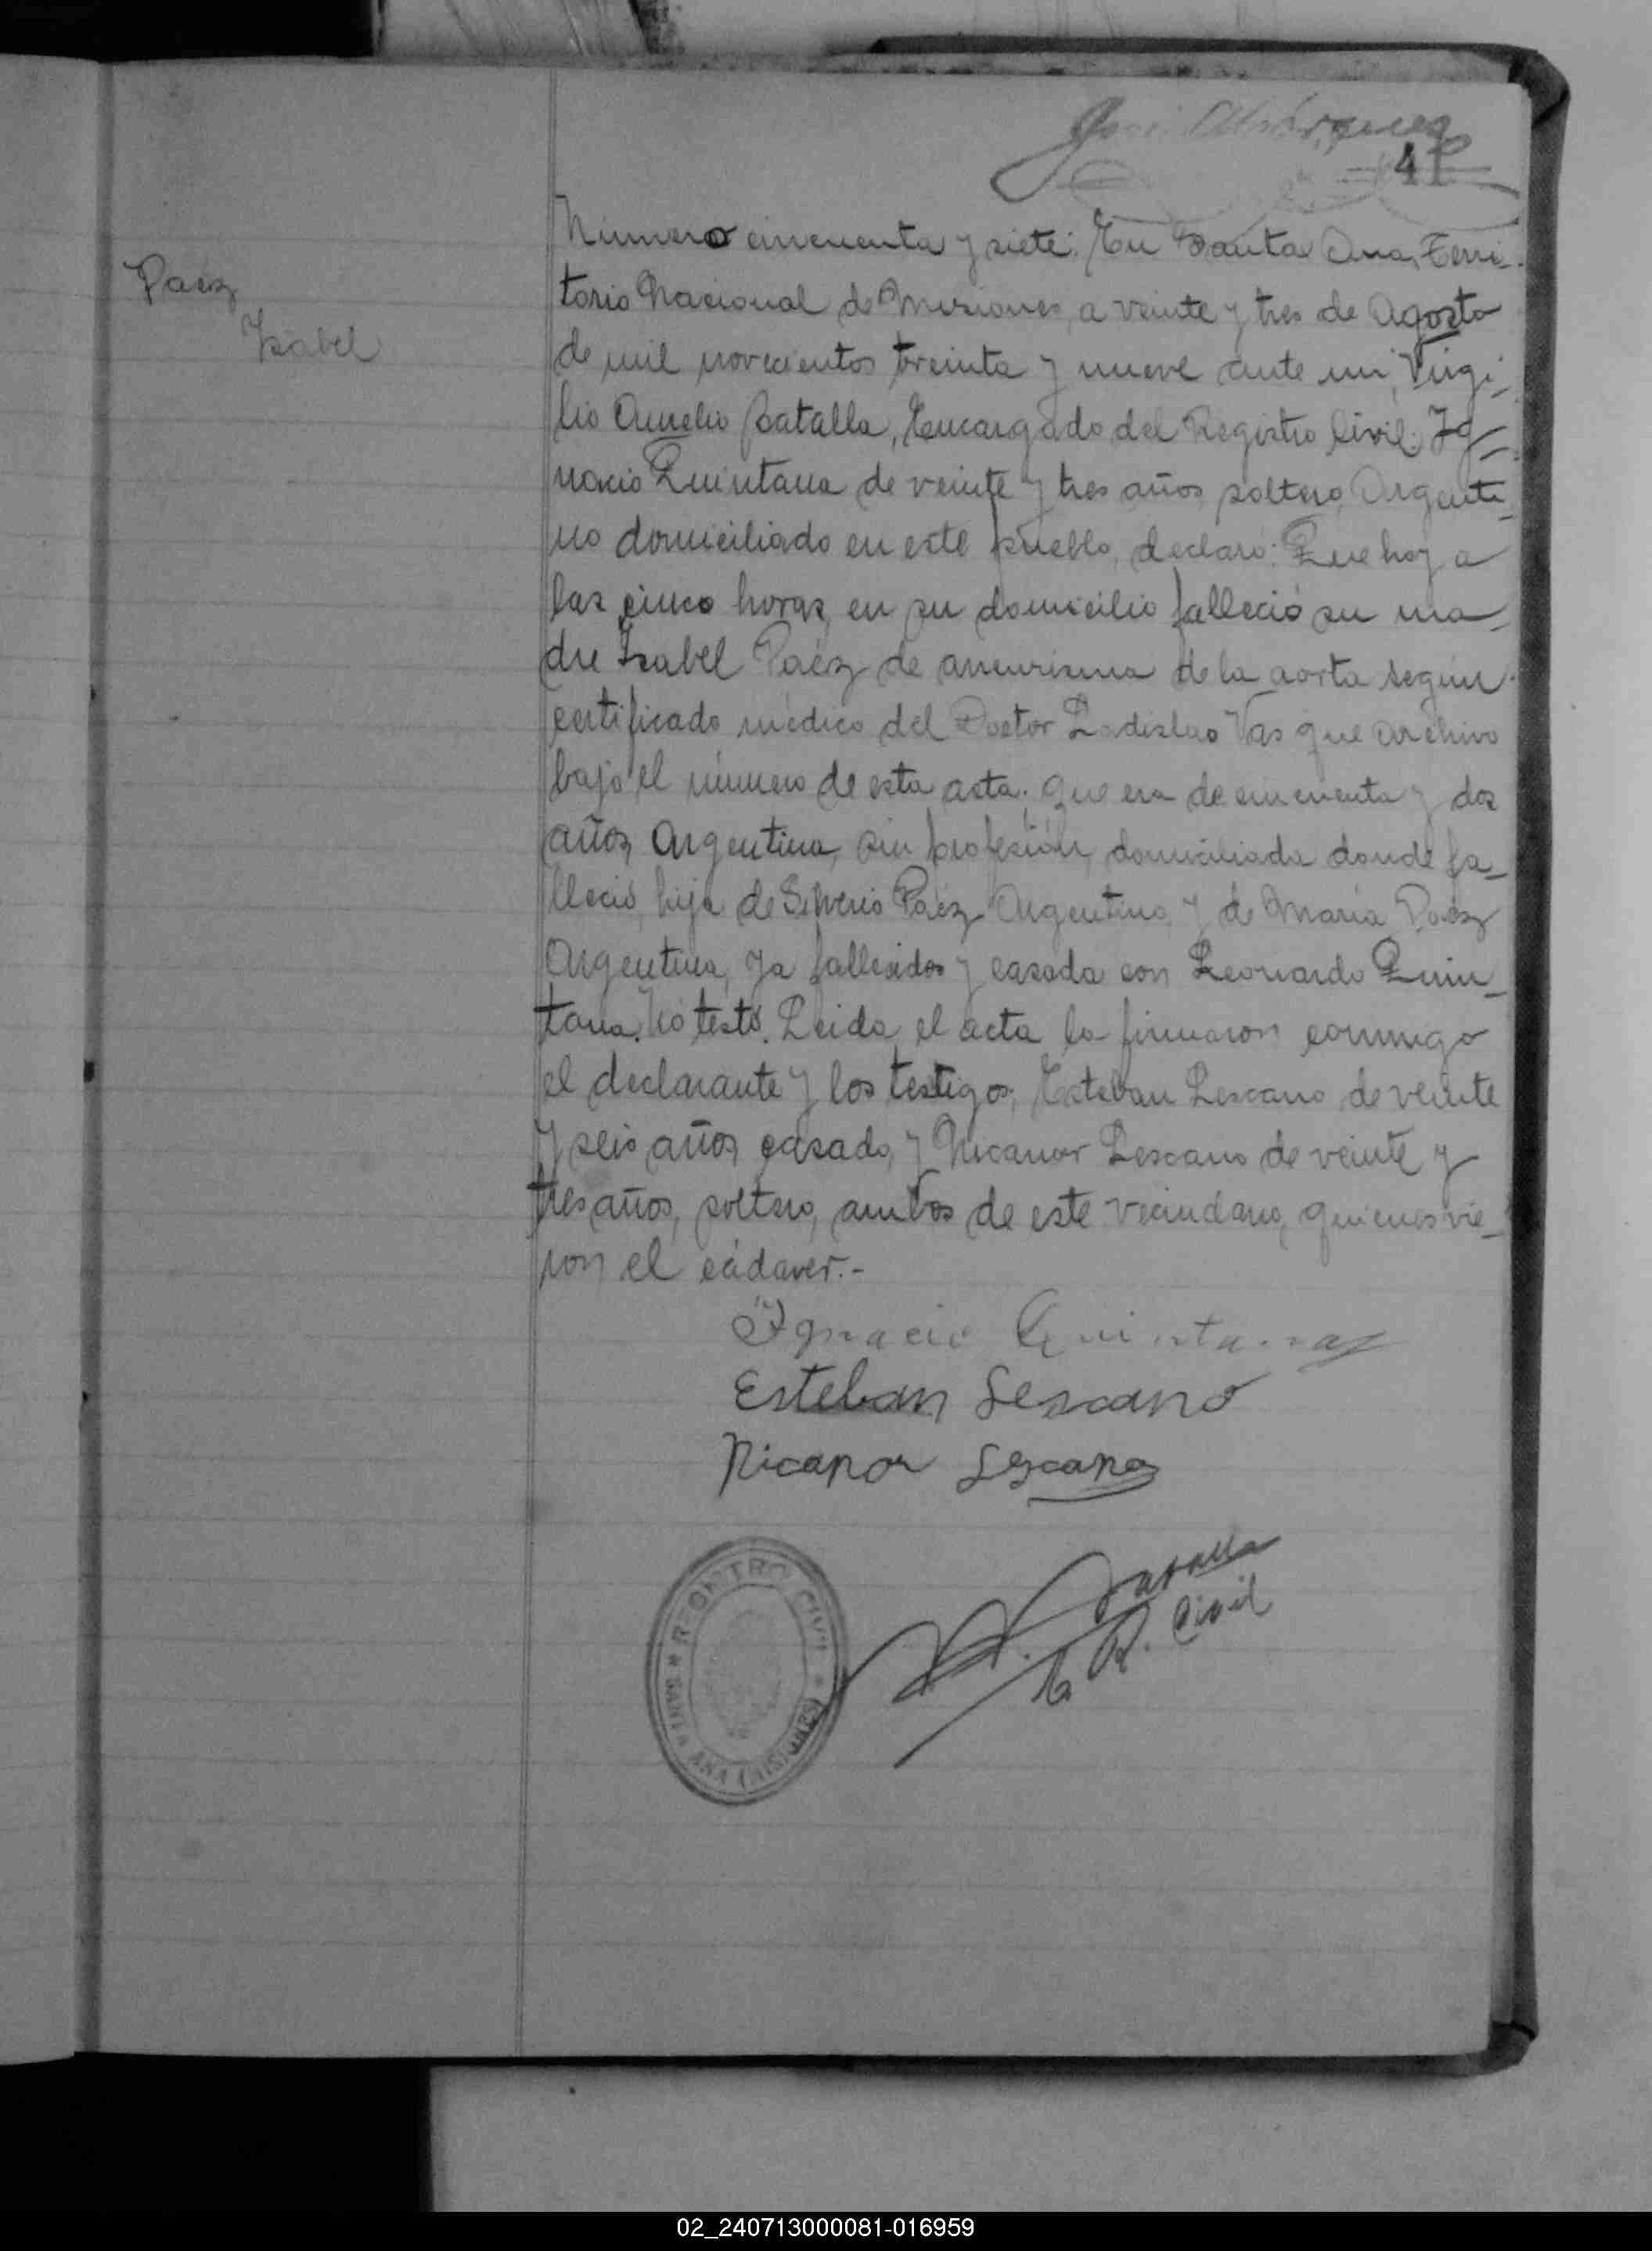 José Márquez
41
Paéz
Isabel
Número cincuenta y siete: En Santa Ana, Terri-
torio Nacional de Misiones, a veinte y tres de Agosto
de mil novecientos treinta y nueve ante mi, Virgi-
lio Aurelio Batalla, Encargado del Registro Civil: Ig-
nacio Quintana de veinte y tres años, soltero, Argenti-
no domiciliado en este pueblo, declaró: Que hoy a
las cinco horas, en su domicilio falleció su ma-
dre Isabel Paéz de aneurisma de la aorta según
certificado médico del Doctor Ladislao Vas que archivo
bajo el número de esta acta; que era de cincuenta y dos
años, Argentina, sin profesión, domiciliada donde fa-
lleció, hija de Silverio Paéz Argentino, y de María Paéz
Argentina, ya fallecidos y casada con Leonardo Quin-
tana. No testó. Leida el acta la firmaron conmigo
el declarante y los testigos, Esteban Lescano de veinte
y seis años, casado, y Nicanor Lescano de veinte y
tres años, soltero, ambos de este vecindario, quienes vie-
ron el cádaver.-
Ignacio Quintana
Esteban Lescano
Nicanor Lescano
Batalla
E. R. Civil
REGISTRO CIVIL
SANTA ANA (MISIONES)
02_240713000081-016959